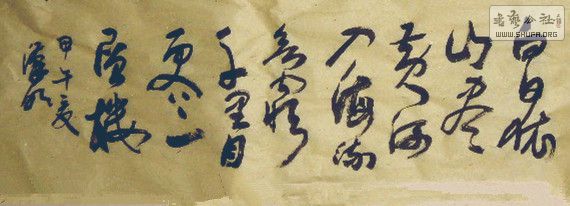 書藝公社
WWW.SHUFA.ORG
白日依
山尽
黄河
入海流
欲穷
千里目
更上一
层楼
甲午夏